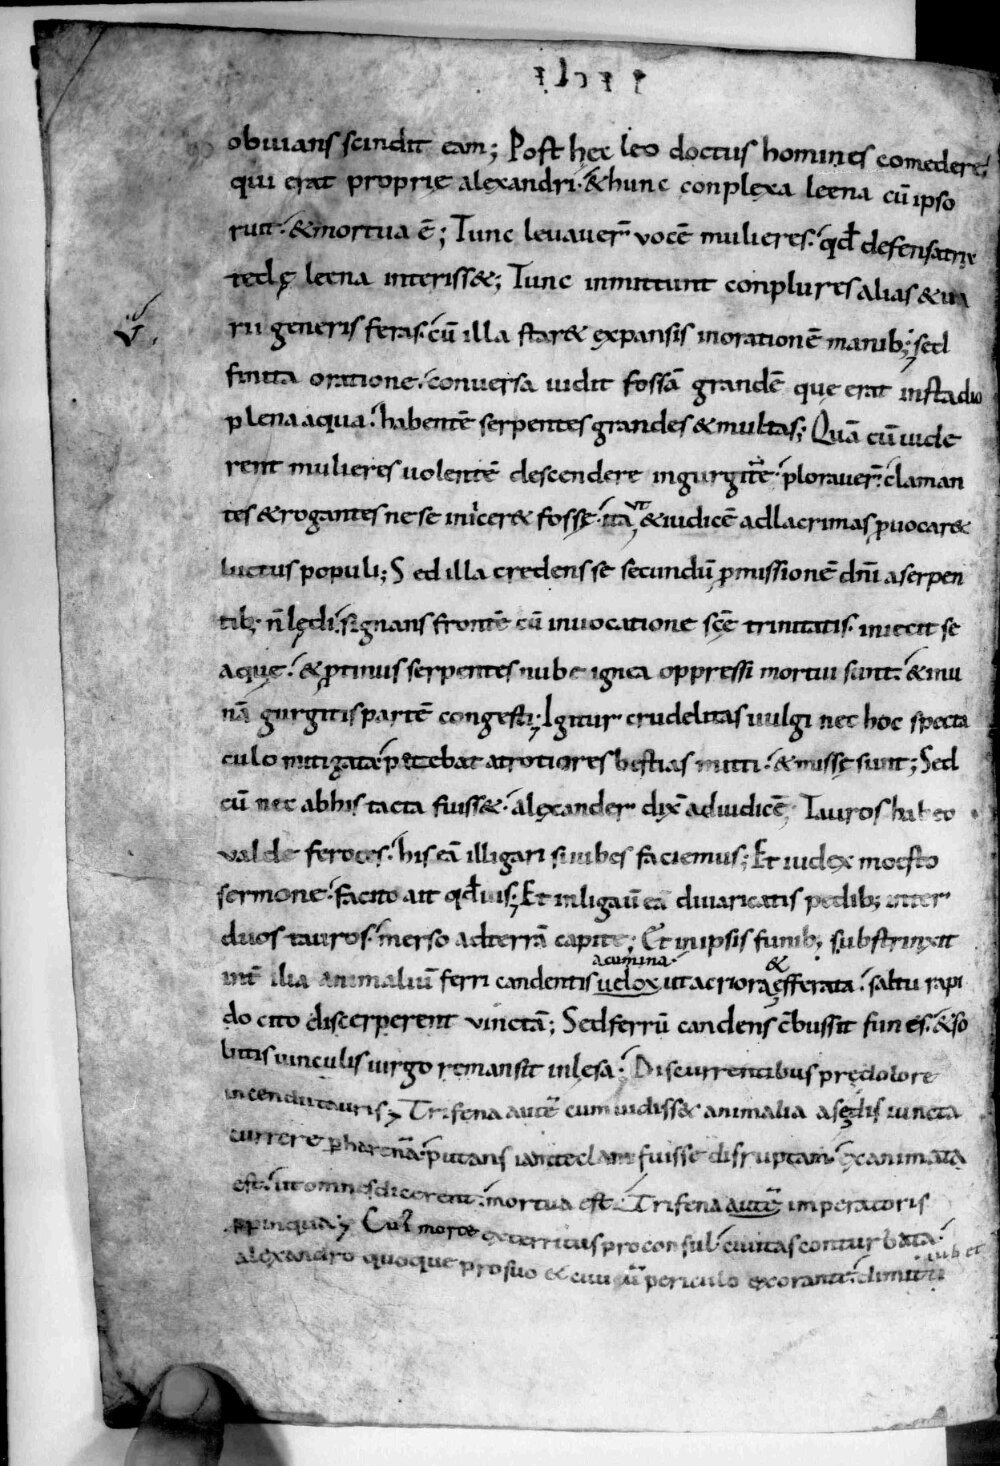 obuians scindit eam; Post hec leo doctus homines comedere;
qui erat proprie alexandri. & hunc conplexa leena cū ipso
ruit. & mortua ē; Tunc leuauer̄ vocē mulieres. qđ defensatrix
teclę leena interiss&; Tunc inmittunt conplures alias & ua
rii generis feras. cū illa star& expansis inorationē manib; sed
finita oratione. conuersa uidit fossā grandē que erat instadio
plena aqua. habentē serpentes grandes & multas; Quā cū uide
rent mulieres uolentē descendere ingurgitē. plorauer̄. claman
tes & rogantes ne se inicer& fossę. ita ut & iudicē adlacrimas ꝓuocar&
luctus populi; Sed illa credens se secundū ꝓmissionē dn̄i aserpen
tib; n̄ lędi. signans frontē cū inuocatione scē trinitatis. iniecit se
aquę. & ꝓtinus serpentes nube ignea oppressi mortui sunt. & inu
nā gurgitis partē congesti; Igitur crudelitas uulgi nec hoc specta
culo mitigata. petebat atrotiores bestias mitti. & missę sunt; Sed
cū nec abhis tacta fuiss&. alexander dix̄ adiudicē; Tauros habeo
valde feroces. his eā illigari si iubes faciemus; Et iudex moesto
sermone. facito ait qđ uis; Et inligauē eā diuaricatis pedib; inter
duos tauros. merso adterrā capite; Et inipsis funib; substrinxit
acumina. &
int̄ ilia animaliū ferri candentis uelox ut acriora efferata. saltu rapi
do cito discerperent vinctā; Sed ferrū candens cōbussit funes. & so
lutis uinculis uirgo remansit inlesa; Discurrentibus prędolore
incendii tauris; Trifena autē cum uidiss& animalia
currere ꝑ harenā. putans iam teclam fuisse disruptam. exanimata
est. ut omnes dicerent. mortua est. Trifena autē imperatoris
ꝓpinqua; morte exterritus proconsul. ciuitas conturbata.
alexandro quoque prosuo & ciuiū periculo exorante.